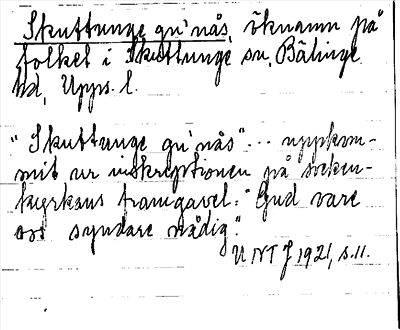 Skuttunge gu' nås, öknamn på
folket i Skuttunge sn, Bälinge
hd, Upps. l.
"Skuttunge gu' nås" ... uppkom-
mit ur inskriptionen på socken-
kyrkans framgavel: "Gud vare
oss syndare nådig".
UNT J 1921, s. 11.